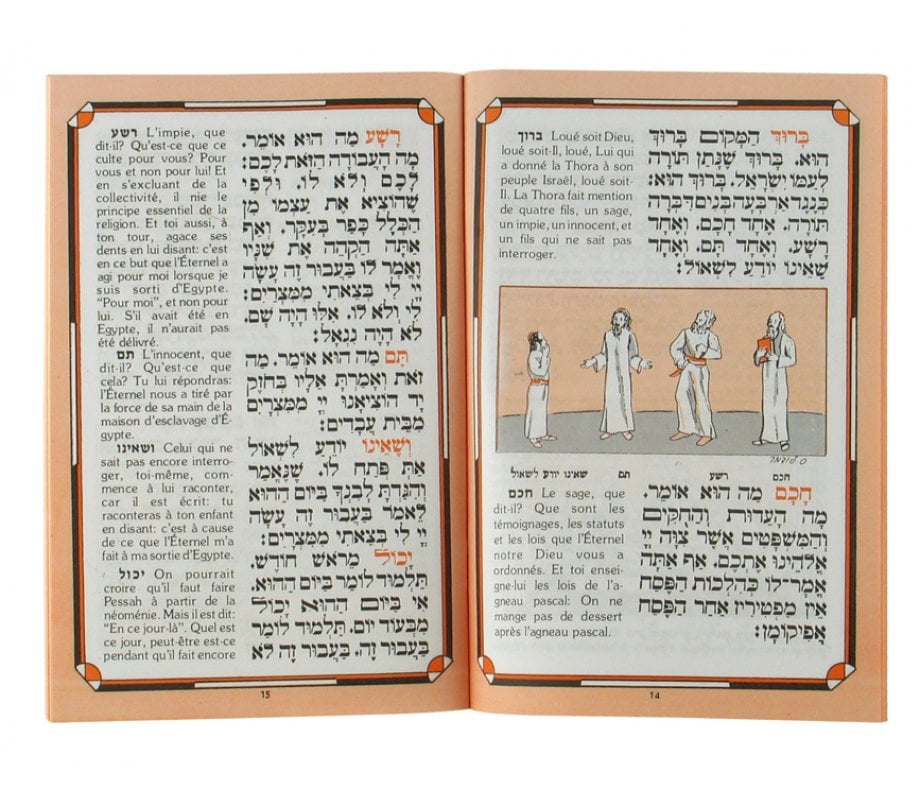 בָּרוּךְ הַמָּקוֹם בָּרוּךְ
הוּא. בָּרוּךְ שֶׁנָּתַן תּוֹרָה
לְעַמּוֹ יִשְׂרָאֵל. בָּרוּךְ הוּא:
כְּנֶגֶד אַרְבָּעָה בָנִים דִּבְּרָה
תוֹרָה. אֶחָד חָכָם. וְאֶחָד
רָשָׁע. וְאֶחָד תָּם. וְאֶחָד
שֶׁאֵינוֹ יוֹדֵעַ לִשְׁאוֹל:
ברוך Loué soit Dieu,
loué soit-Il, loué, Lui qui
a donné la Thora à son
peuple Israël, loué soit-
Il. La Thora fait mention
de quatre fils, un sage,
un impie, un innocent, et
un fils qui ne sait pas
interroger.
חכם רשע תם שאינו יודע לשאול
חָכָם מַה הוּא אוֹמֵר.
מָה הָעֵדוּת וְהַחֻקִּים
וְהַמִּשְׁפָּטִים אֲשֶׁר צִוָּה יְיָ
אֱלֹהֵינוּ אֶתְכֶם. אַף אַתָּה
אֱמָר־לוֹ כְּהִלְכוֹת הַפֶּסַח
אֵין מַפְטִירִין אַחַר הַפֶּסַח
אֲפִיקוֹמָן:
חכם Le sage, que
dit-il? Que sont les
témoignages, les statuts
et les lois que l'Éternel
notre Dieu vous a
ordonnés. Et toi ensei-
gne-lui les lois de l'a-
gneau pascal: On ne
mange pas de dessert
après l'agneau pascal.
14
רָשָׁע מַה הוּא אוֹמֵר.
מָה הָעֲבוֹדָה הַזֹּאת לָכֶם:
לָכֶם וְלֹא לוֹ. וּלְפִי
שֶׁהוֹצִיא אֶת עַצְמוֹ מִן
הַכְּלָל כָּפַר בְּעִקָּר. וְאַף
אַתָּה הַקְהֵה אֶת שִׁנָּיו
וֶאֱמָר לוֹ בַּעֲבוּר זֶה עָשָׂה
יְיָ לִי בְּצֵאתִי מִמִּצְרָיִם:
לִי וְלֹא לוֹ. אִלּוּ הָיָה שָׁם.
לֹא הָיָה נִגְאָל:
תָּם מַה הוּא אוֹמֵר. מַה
זֹּאת וְאָמַרְתָּ אֵלָיו בְּחֹזֶק
יָד הוֹצִיאָנוּ יְיָ מִמִּצְרַיִם
מִבֵּית עֲבָדִים:
וְשֶׁאֵינוֹ יוֹדֵעַ לִשְׁאוֹל
אַתְּ פְּתַח לוֹ. שֶׁנֶּאֱמַר
וְהִגַּדְתָּ לְבִנְךָ בַּיּוֹם הַהוּא
לֵאמֹר בַּעֲבוּר זֶה עָשָׂה
יְיָ לִי בְּצֵאתִי מִמִּצְרָיִם:
יָכוֹל מֵרֹאשׁ חוֹדֶשׁ.
תַּלְמוּד לוֹמַר בַּיּוֹם הַהוּא.
אִי בַּיּוֹם הַהוּא יָכוֹל
מִבְּעוֹד יוֹם. תַּלְמוּד לוֹמַר
בַּעֲבוּר זֶה. בַּעֲבוּר זֶה לֹא
רשע L'impie, que
dit-il? Qu'est-ce que ce
culte pour vous? Pour
vous et non pour lui! Et
en s'excluant de la
collectivité, il nie le
principe essentiel de la
religion. Et toi aussi, à
ton tour, agace ses
dents en lui disant: c'est
en ce but que l'Éternel a
agi pour moi lorsque je
suis sorti d'Egypte.
"Pour moi", et non pour
lui. S'il avait été en
Egypte, il n'aurait pas
été délivré.
תם L'innocent, que
dit-il? Qu'est-ce que
cela? Tu lui répondras:
l'Éternel nous a tiré par
la force de sa main de la
maison d'esclavage d'É-
gypte.
ושאינו Celui qui ne
sait pas encore interro-
ger, toi-même, com-
mence à lui raconter,
car il est écrit: tu
raconteras à ton enfant
en disant: c'est à cause
de ce que l'Éternel m'a
fait à ma sortie d'Egypte.
יכול On pourrait
croire qu'il faut faire
Pessah à partir de la
néoménie. Mais il est dit:
"En ce jour-là". Quel est
ce jour, peut-être est-ce
pendant qu'il fait encore
15